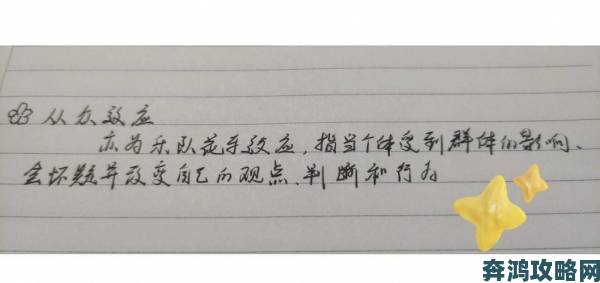 83 从众效应
亦为乐队花车效应，指当个体受到群体的影响、
会怀疑并改变自己的观点、判断和行为
奔鸿攻略网